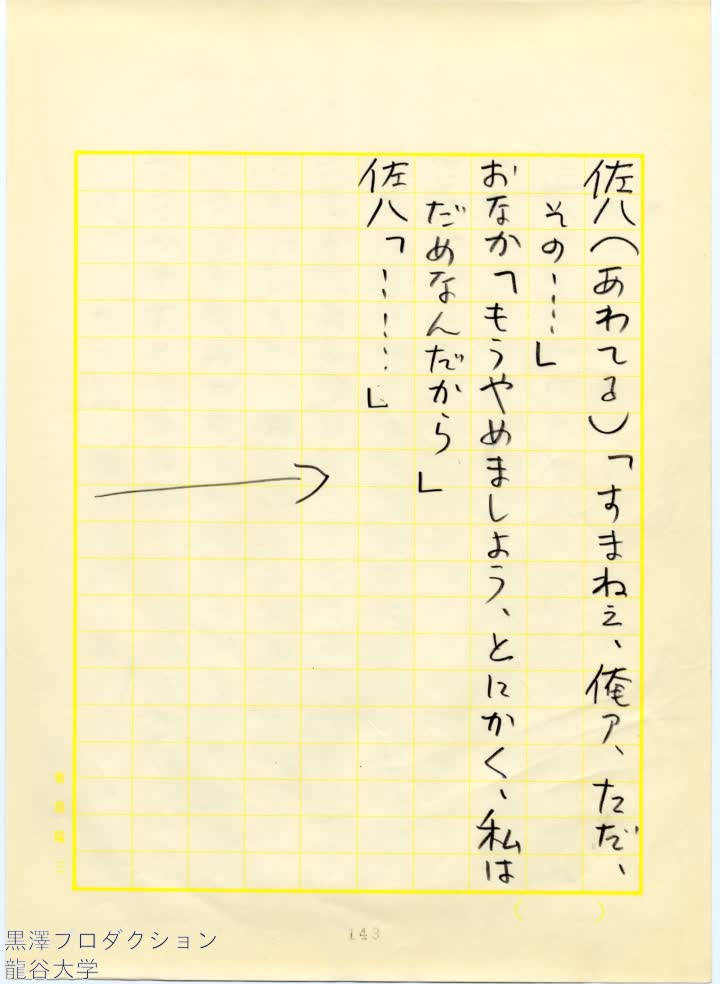 佐八(あわてる)「すまねえ、俺ァ、ただ、
その……」
おなか「もうやめましよう、とにかく、私は
だめなんだから」
佐八「………」
143
黒澤プロダクション
龍谷大学